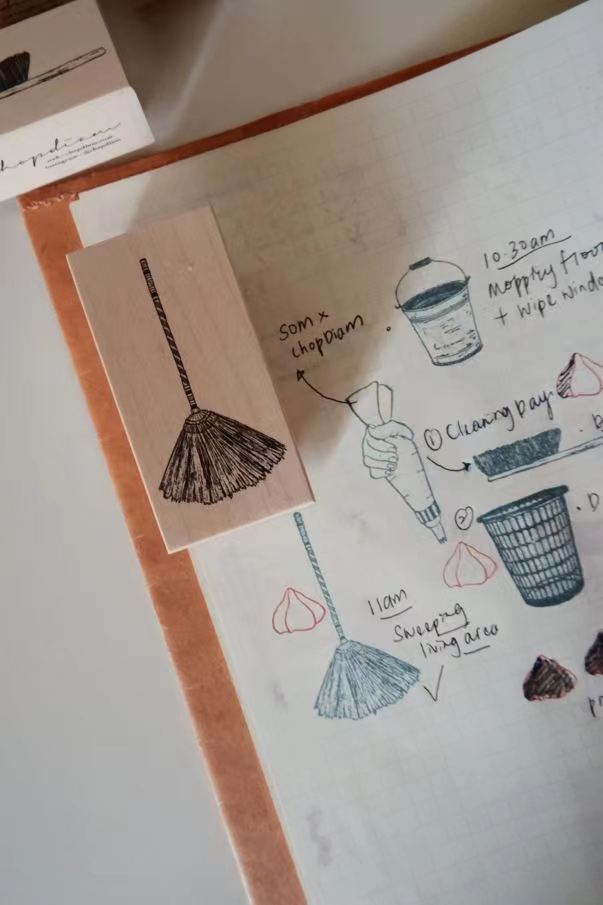 chopdiam
10.30am
Mopping floor
+ wipe window
som x
chopdiam
① Cleaning Day
②
11am
Sweeping
living area